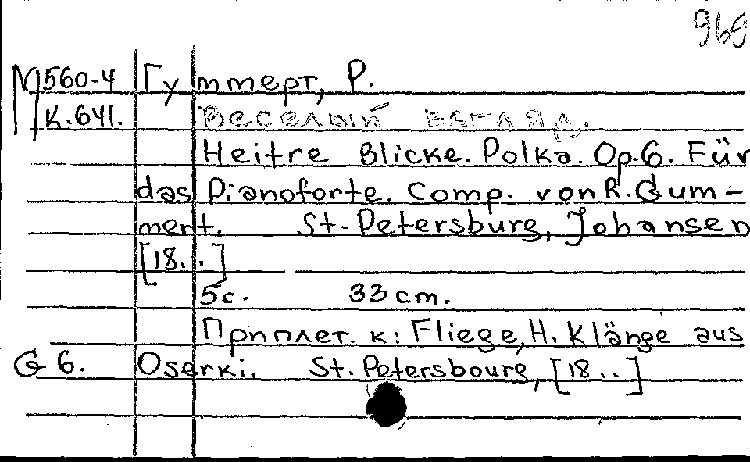 969
М560-4 Гуммерт, Р.
К.641. Веселый взгляд.
Heitre Blicke. Polka. Op.6. Für
das Pianoforte. Comp. von R. Gum-
mert. St-Petersburg, Johansen
[18..]
5с. 33 cm.
Приплет. к: Fliege, H. Klänge aus
G 6. Oserki. St. Petersbourg, [18..]